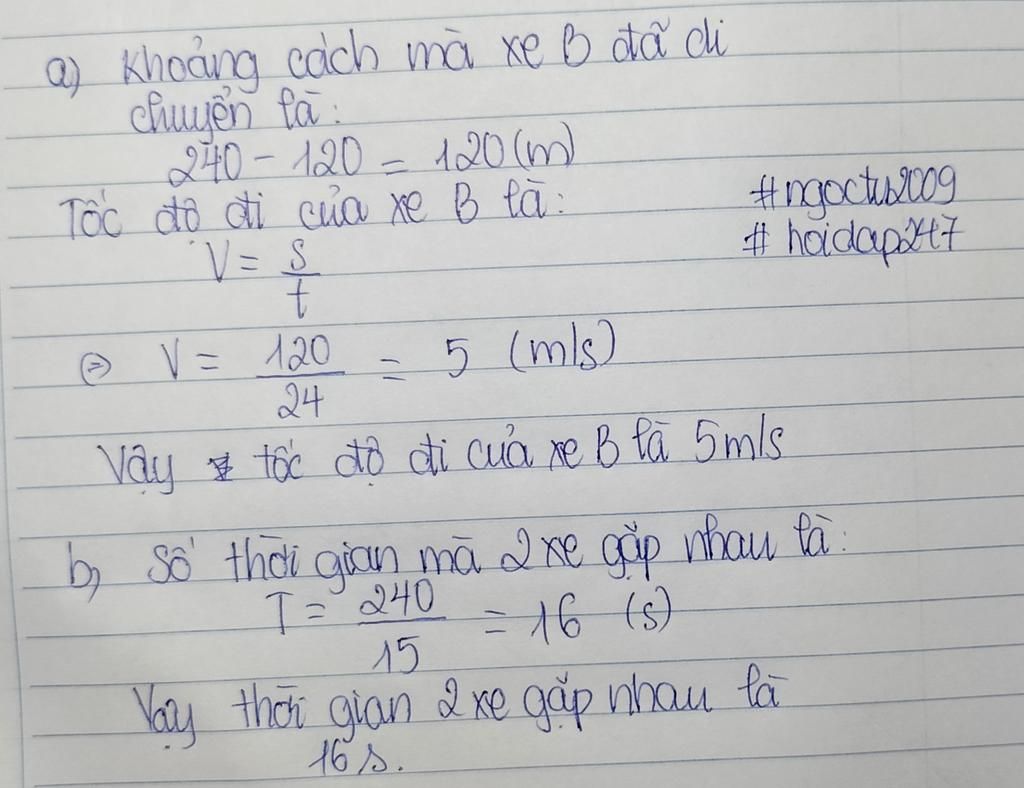 a) Khoảng cách mà xe B đã di
chuyển là:
240 - 120 = 120 (m)
Tốc độ đi của xe B là:
#ngoctu2009
# hoidap247
V = s/t
⇔ V = 120/24 = 5 (m/s)
Vậy tốc độ đi của xe B là 5m/s
b) Số thời gian mà 2 xe gặp nhau là:
T = 240/15 = 16 (s)
Vậy thời gian 2 xe gặp nhau là
16s.